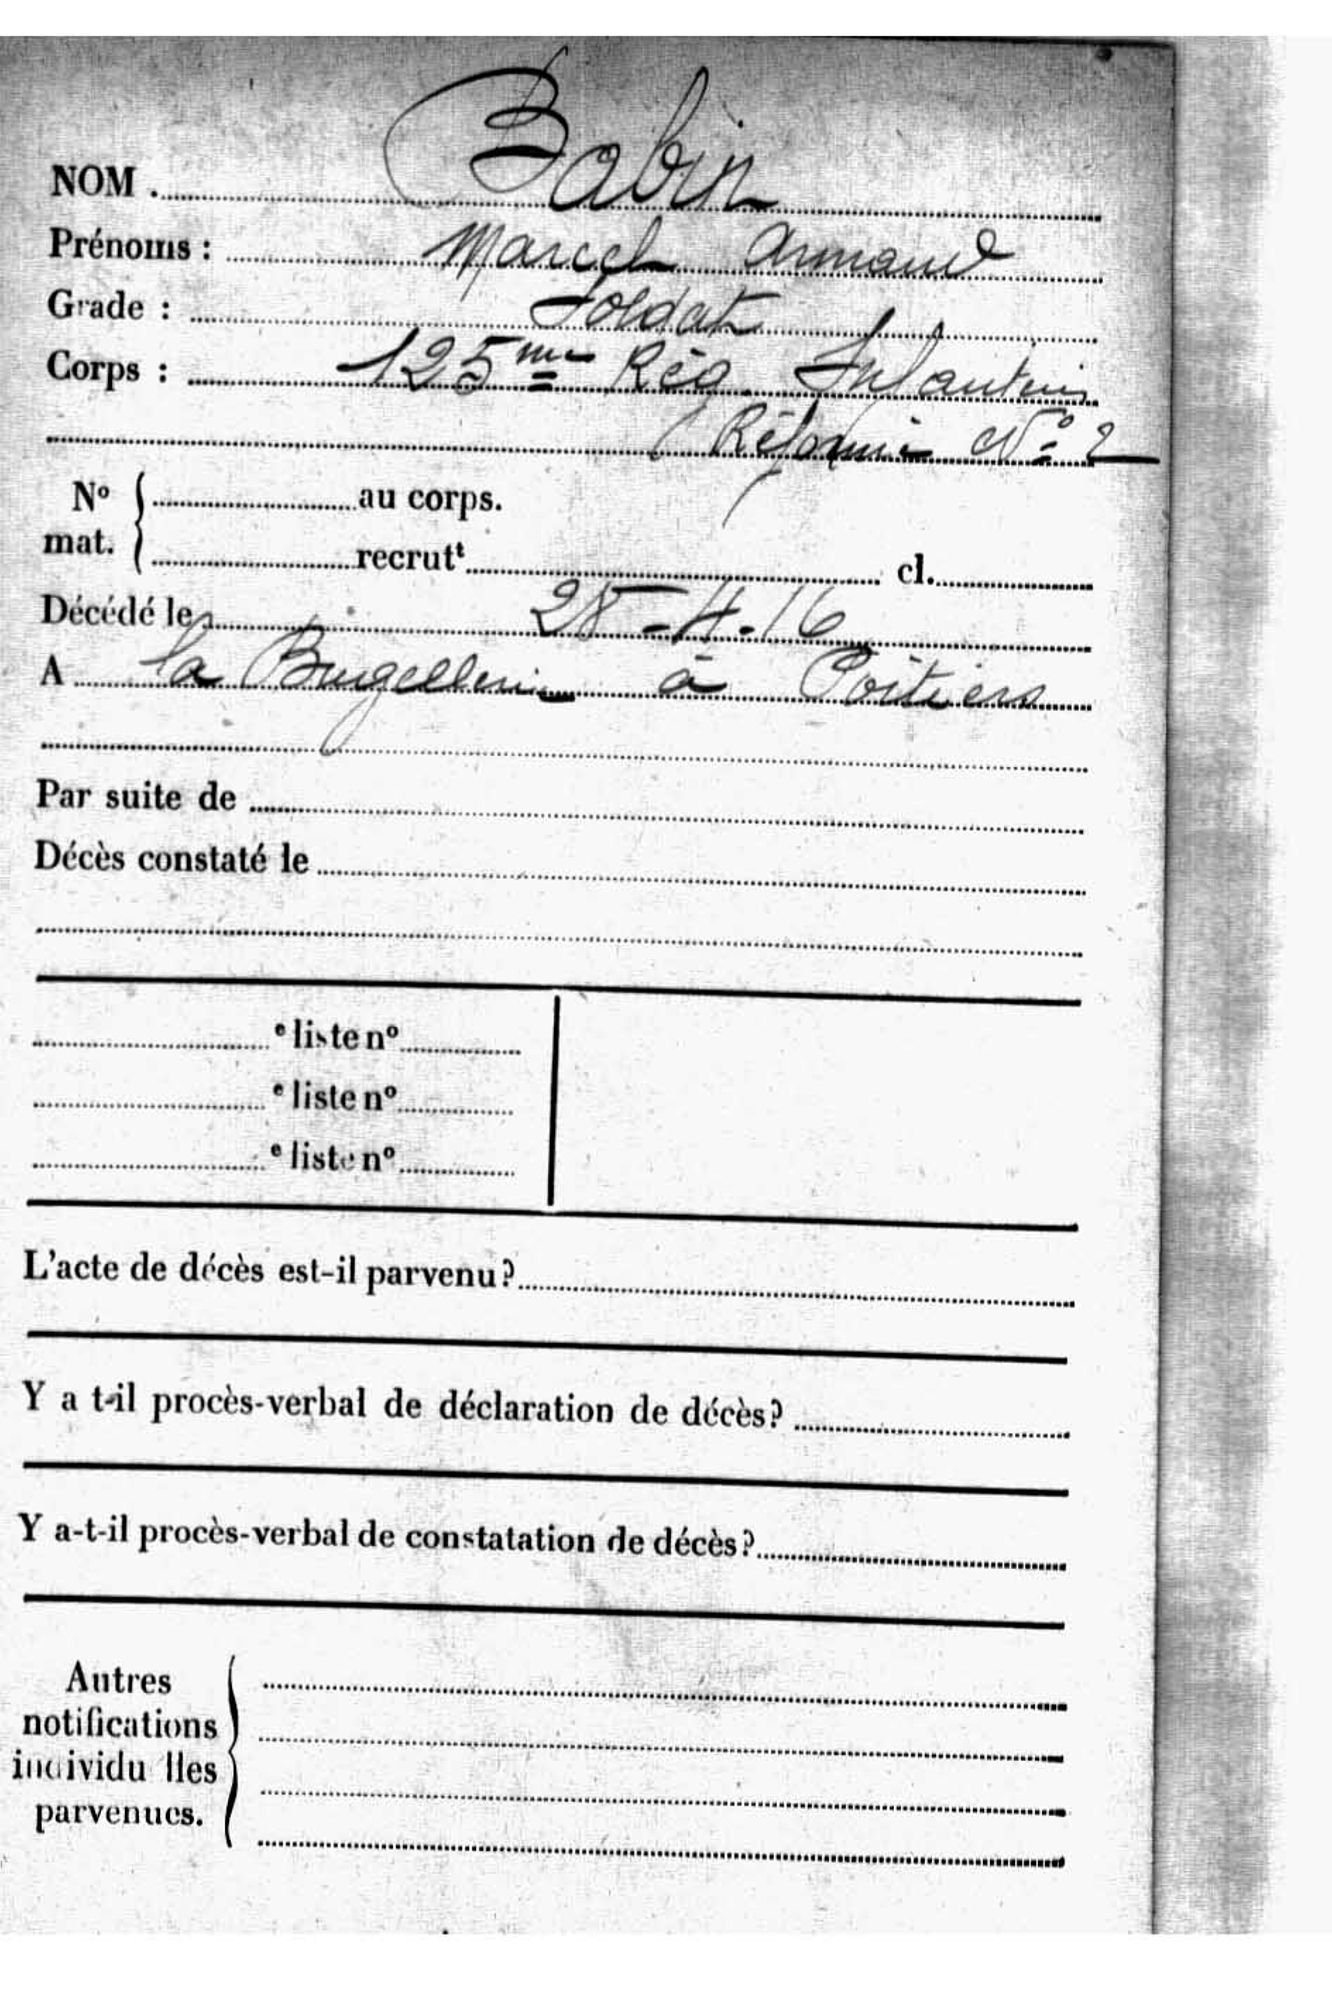 NOM . Babin
Prénoms : Marcel Armand
Grade : Soldat
Corps : 125me Rég. Infanterie
(Réformé No 2
No mat. { au corps.
recrutt cl.
Décédé le 25-4-16
A la Bugellerie à Poitiers
Par suite de
Décès constaté le
e liste no
e liste no
e liste no
L'acte de décès est-il parvenu?
Y a t-il procès-verbal de déclaration de décès?
Y a-t-il procès-verbal de constatation de décès?
Autres
notifications
individu lles
parvenues.